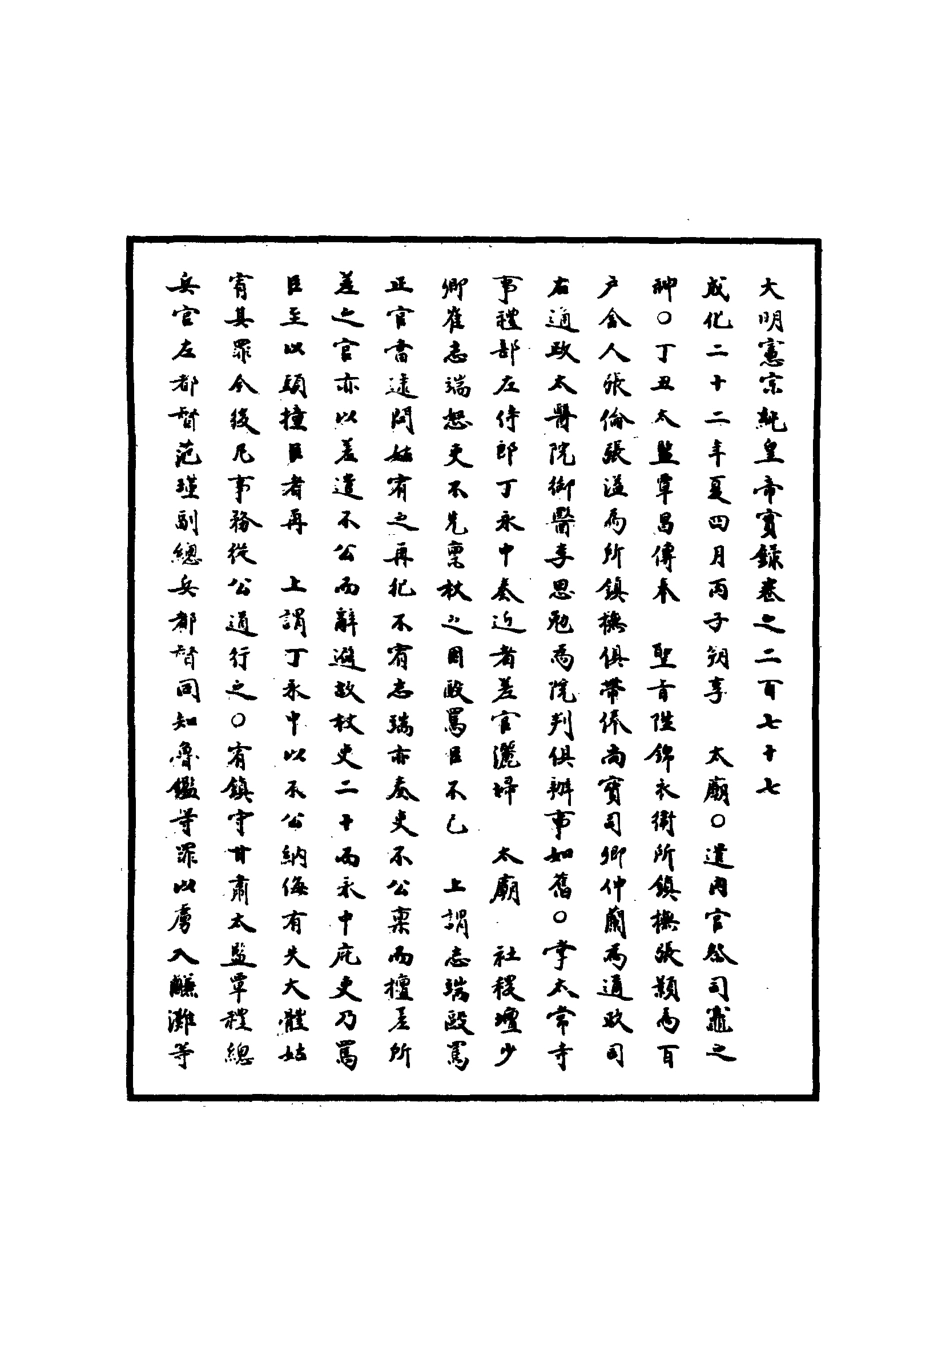 大明憲宗純皇帝實錄卷之二百七十七
成化二十二年夏四月丙子朔享　太廟○遣內官祭司竈之
神○丁丑太監覃昌傳奉　聖旨陞錦衣衛所鎮撫張顥為百
戶舍人張倫張溢為所鎮撫俱帶俸尚寶司卿仲蘭為通政司
右通政太醫院御醫李思勉為院判俱辦事如舊○掌太常寺
事禮部左侍郎丁永中奏近者差官灑掃　太廟　社稷壇少
卿崔志端怒吏不先稟杖之因毆罵臣不已　上謂志端毆罵
正官當逮問姑宥之再犯不宥志端亦奏吏不公稟而擅差所
差之官亦以差遣不公而辭避故杖吏二十而永中庇吏乃罵
臣至以頭撞臣者再　上謂丁永中以不公納侮有失大體姑
宥其罪今後凡事務從公通行之○宥鎮守甘肅太監覃禮總
兵官左都督范瑾副總兵都督同知魯鑑等罪以虜入鹻灘等